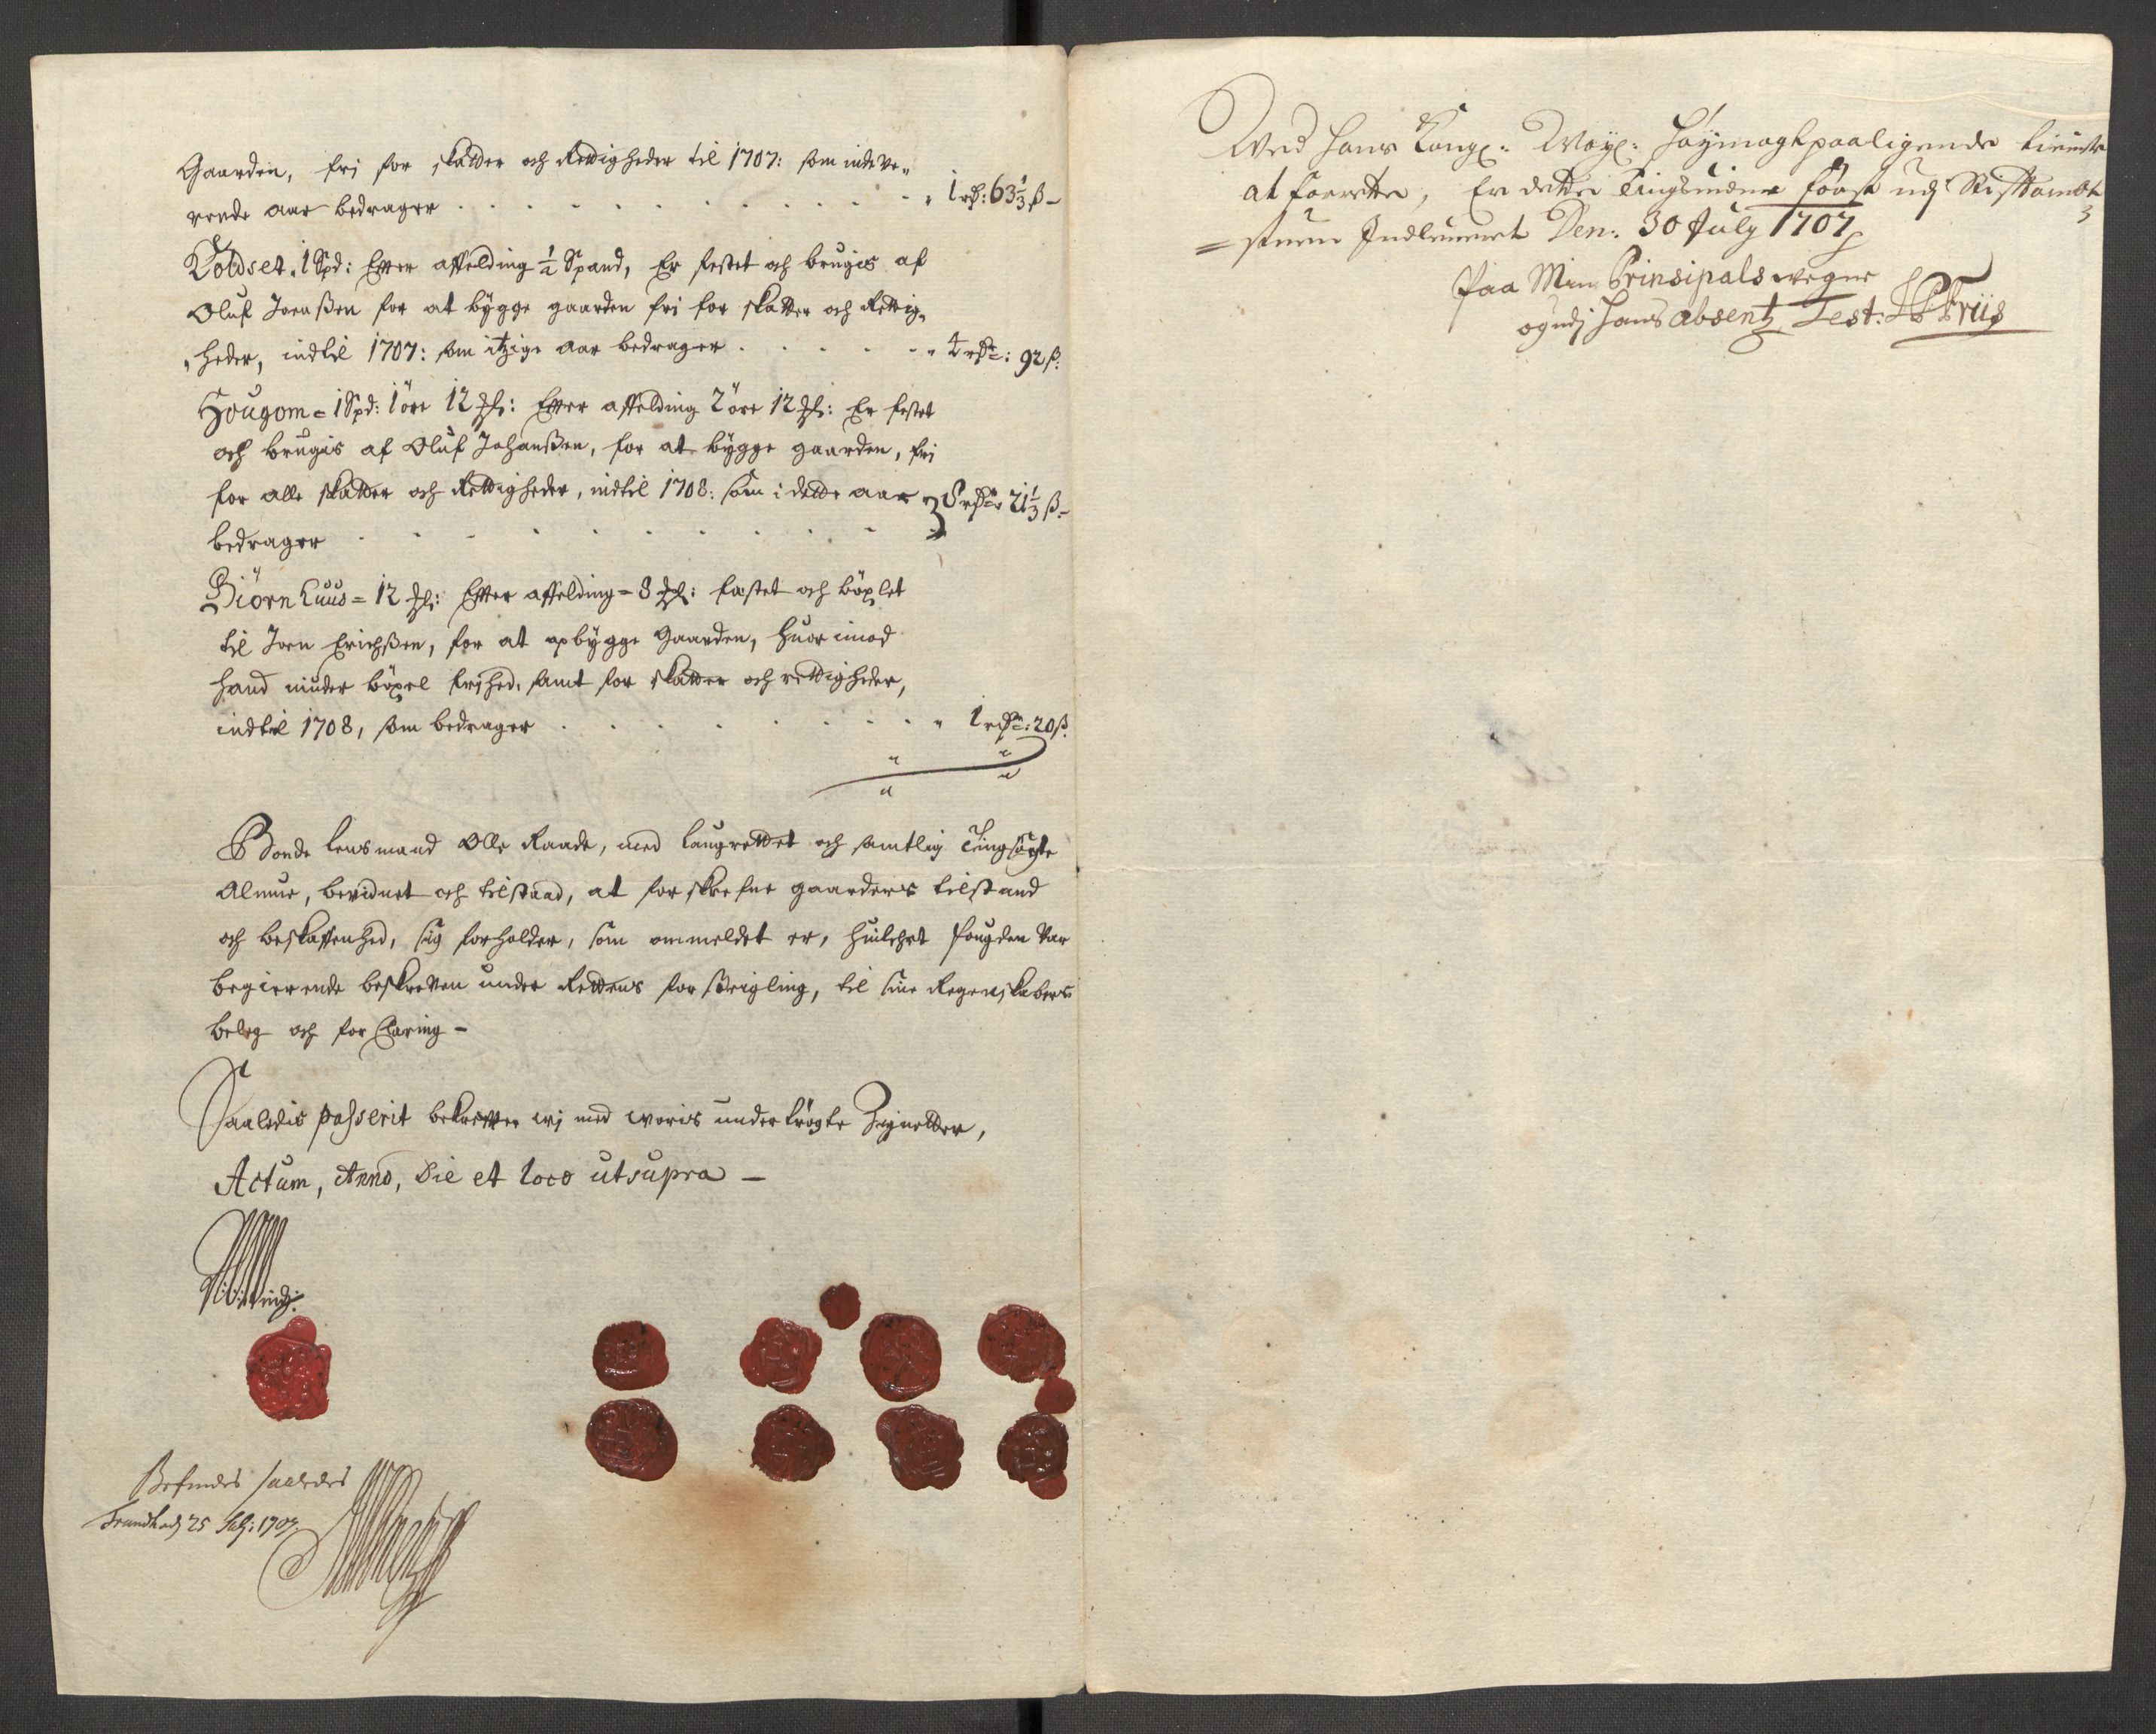 Gaarden, fri for skatter och Rettigheder til 1707: som indeve„
rende aar bedrager . . . . . . . . . . „ 1 rd: 63 1/3 ß –
Voldset. 1 Spd: Efter affelding 1/2 Spand, Er festet och brugis af
Oluf Joenßen for at bygge gaarden fri for skatter och Rettig„
„heder, indtil 1707: som itzige aar bedrager . . . . . „ 4 rdr: 92 ß.
Hougom = 1 Spd: 1 öre 12 Ml: Efter affelding 2 öre 12 Ml: Er festet
och brugis af Oluf Johanßen, for at bygge gaarden, fri
for alle skatter och Rettigheder, indtil 1708: som i dette aar
bedrager . . . . . . . . . . 8 rdr 21 1/3 ß –
Biörnhuus = 12 Ml: Efter affelding = 8 Ml: festet och böxlet
til Joen Erichßen, for at opbygge Gaarden, huor imod
hand niuder böxel frihed, samt for skatter och rettigheder,
indtil 1708, som bedrager . . . . . . . . „ 1 rdr: 20 ß.
Bonde Lensmand Olle Raade, med Laugrettet och samtlig Tingsögte
Almue, bevidnet och tilstaad, at forskrefne gaarders tilstand
och beskaffenhed, sig forholder, som ommeldet er, huilchet Fougden var
begierende beskreven under Rettens forseigling, til sine Regenskabers
beleg och forklaring –
Saaledis passerit bekrefter wi med woris undertrögte Zignetter,
Actum, Anno, Die et loco ut supra –
Befindes saaledes
Trundhed 25 July: 1707.
Ved hans Kongl: Mayt: höymagtpaaligende tieniste
at forrette, Er dette Tingsvidne först udj Stiftambt
= stuen Indleveret Den: 30 July 1707
Paa Min Prinsipals vegne
og udj hans absentz Test: Friis